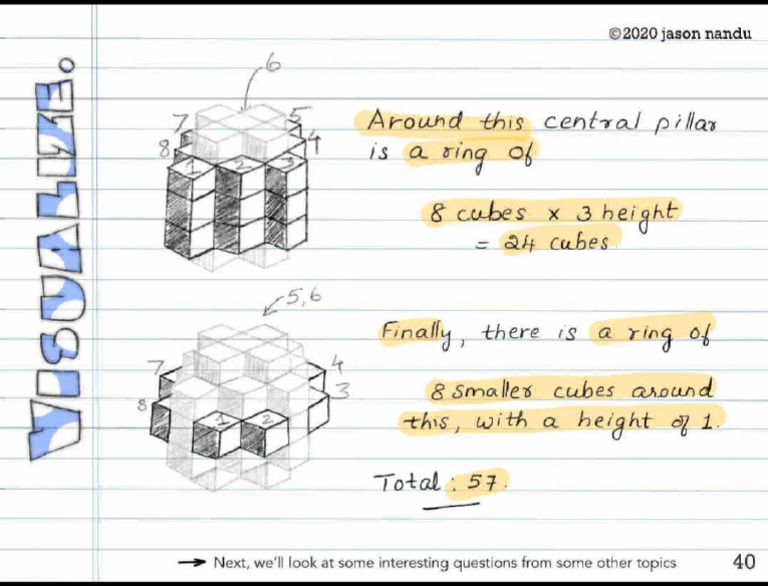 ©2020 jason nandu
VISUALIZE.
6
7
5
8
4
1
2
3
Around this central pillar
is a ring of
8 cubes x 3 height
= 24 cubes
5,6
7
4
8
3
1
2
Finally, there is a ring of
8 smaller cubes around
this, with a height of 1.
Total : 57.
→ Next, we'll look at some interesting questions from some other topics
40